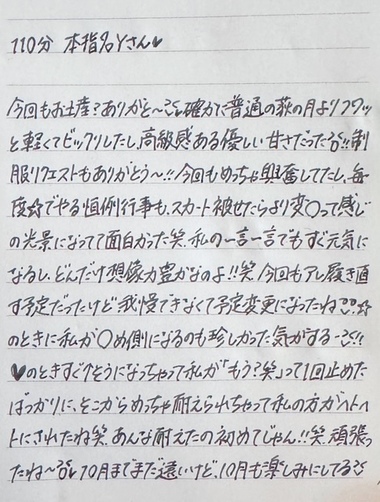 110分 本指名Yさん♥
今回もお土産?ありがと〜!!確かに普通の萩の月よりフワッ
と軽くてビックリしたし、高級感ある優しい甘さだった!!制
服リクエストもありがとう〜!!今回もめっちゃ興奮してたし、毎
度☆でやる恒例行事も、スカート被せたらより変〇って感じ
の光景になってて面白かった笑 私の一言一言でもすぐ元気に
なるし、どんだけ想像力豊かなのよ!!笑 今回もアレ履き直
す予定だったけど我慢できなくて予定変更になったね ☆
のときに私が〇め側になるのも珍しかった気がする〜!!
♥のときすぐイきそうになっちゃって私が「もう?笑」って1回止めた
ばっかりに、そこからめっちゃ耐えられちゃって私の方がヘトヘ
トにされたね笑 あんな耐えたの初めてじゃん!!笑 頑張っ
たね〜 10月までまだ遠いけど、10月も楽しみにしてる